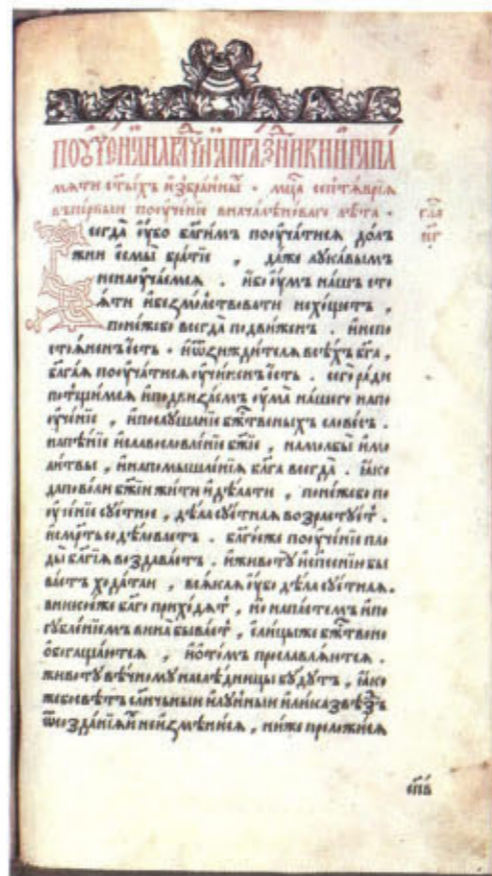 ПОУЧЕНЇАНАРАꙀЛИЧНЫА ПРАꙀНИКИ И НА ПА
мѧти ст҃ыхъ и҆збранны́ . мцⷭ҇а септѧврїѧ
въ первыи поꙋченїе в началѣ новаго лѣта .
Всегда̀ оу҆бо бл҃ги́мъ поꙋча́тисѧ до́лъ
жни є҆смы̀ бра́тїе , да́же лꙋка́вымъ
не наꙋча́емсѧ . и҆бо оу҆́мъ на́шъ сто
ѧ́ти и҆ безмо́лствовати не хо́щетъ ,
поне́же бо всегда̀ подви́женъ . и҆ непо
стоѧ́ненъ є҆́сть . и҆ ѿ зижди́телѧ всѣ́хъ бг҃а ,
бл҃га́ѧ поꙋча́тисѧ оу҆чине́нъ є҆́сть . сегѡ̀ ра́ди
потщи́мсѧ и҆ подви́гнемъ оу҆ма̀ на́шего на по
оу҆че́нїе , и҆ послꙋша́нїе бж҃тве́ныхъ слове́съ .
на пѣ́нїе и҆ славосло́вленїе бж҃їе , на мольбы̀ и҆ мо
ли́твы , и҆ на помышле́нїѧ бл҃га всегда̀ . ꙗ҆́ко
да по во́ли бж҃їи жи́ти и҆ дѣ́лати , поне́же бо по
оу҆че́нїе сꙋ́етное , дѣла̀ сꙋ́етнаѧ возрастꙋ́етъ .
и҆ сме́рть содѣ́ловаетъ . бл҃го́е же поꙋче́нїе пло
ды̀ бл҃гі́ѧ воздава́етъ . и҆ животꙋ̀ и҆ спасе́нїю бы
ва́етъ хода́таи , всѧ́каѧ оу҆́бо дѣла̀ сꙋ́етнаѧ .
в нико́е же бл҃го прихо́дѧтъ , но напа́стемъ и҆ по
гꙋбле́нїемъ вина̀ быва́етъ , є҆ли́цы же бж҃твено
ѡ҆богаща́ютсѧ , и҆ по то́мъ прославлѧ́ютсѧ .
животꙋ̀ вѣ́чномꙋ наслѣ́дницы бꙋ́дꙋтъ , ꙗ҆́ко
же бо свѣ́тъ сл҃нчьныи и҆ лꙋ́нныи и҆ ли́ка звѣ́здъ
ѿ созда́нїѧ и҆ не и҆змѣни́сѧ , нижѐ преложи́сѧ